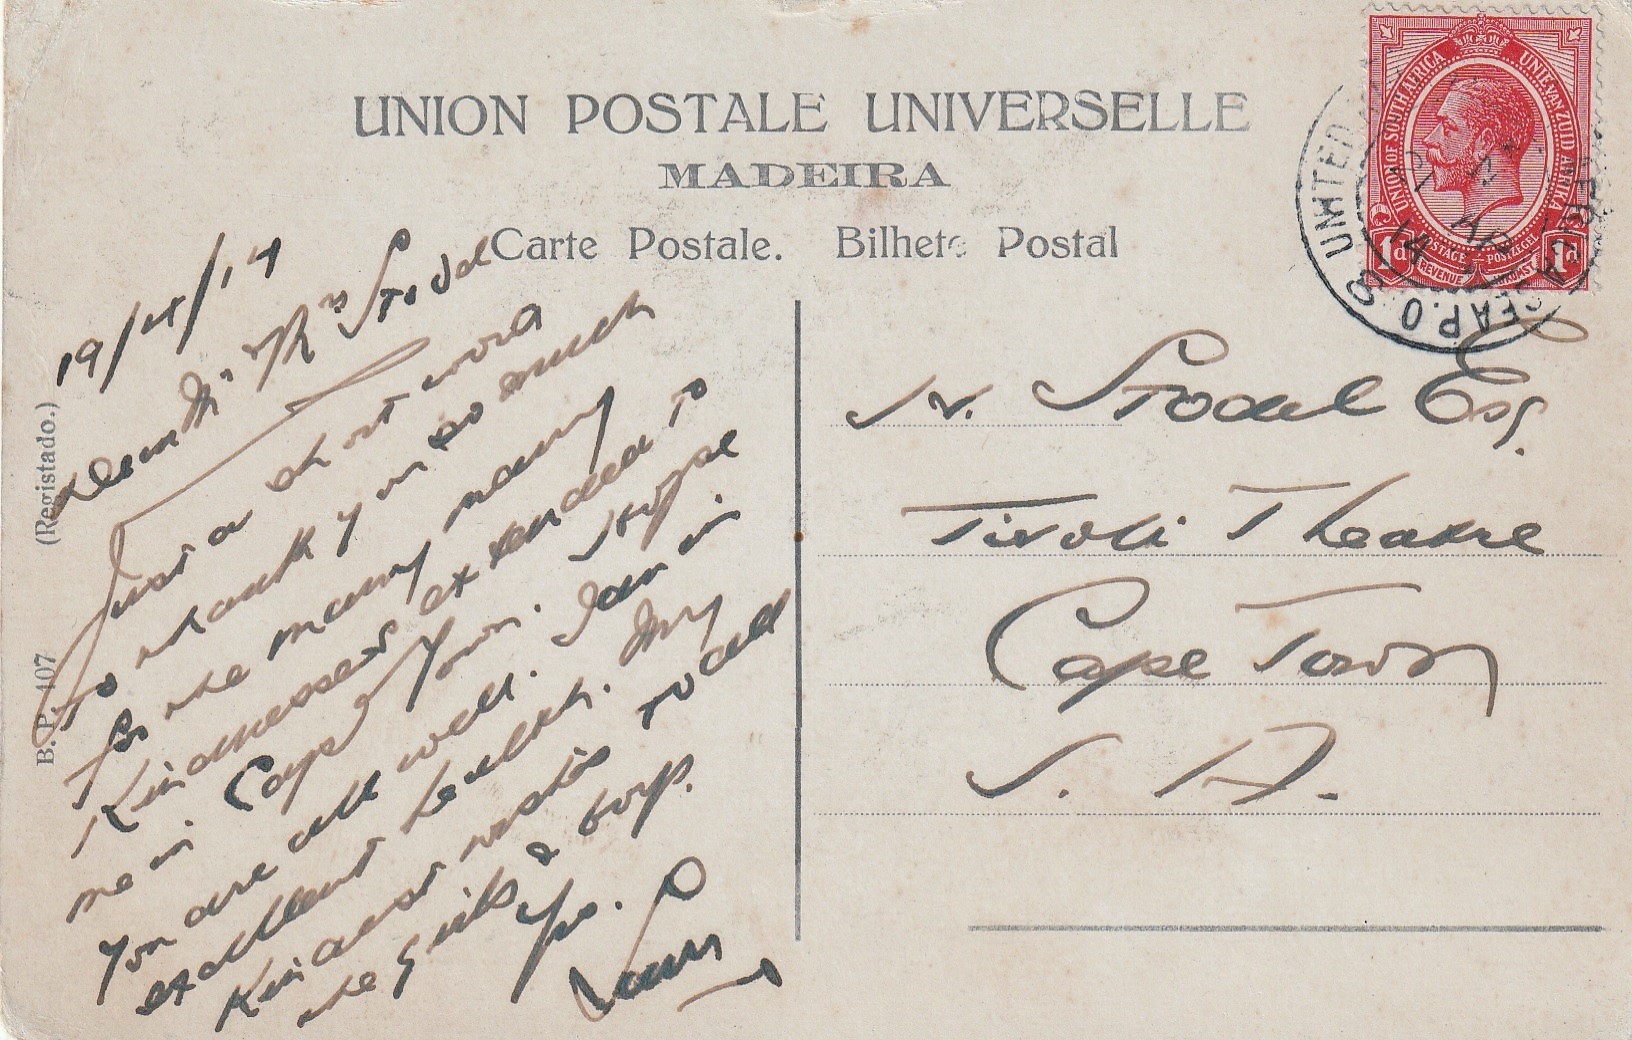 UNION POSTALE UNIVERSELLE
MADEIRA
Carte Postale. Bilhete Postal
(Registado.)
B. P. 407
19/4/14
Dear Mr & Mrs Stodel
Just a short word
to thank you so much
for the many many
Kindnesses extended to
me in Cape Town. I hope
you are all well. I am in
excellent health. My
Kindest wishes to all
the girls & boys.
Yrs.
Stodel Esq.
Tivoli Theatre
Cape Town
S. A.
UNION OF SOUTH AFRICA
UNIE VAN ZUID AFRIKA
POSTAGE POSTZEGEL
REVENUE INKOMST
1d 1d
UNITED
SEA P.O.
AP
14